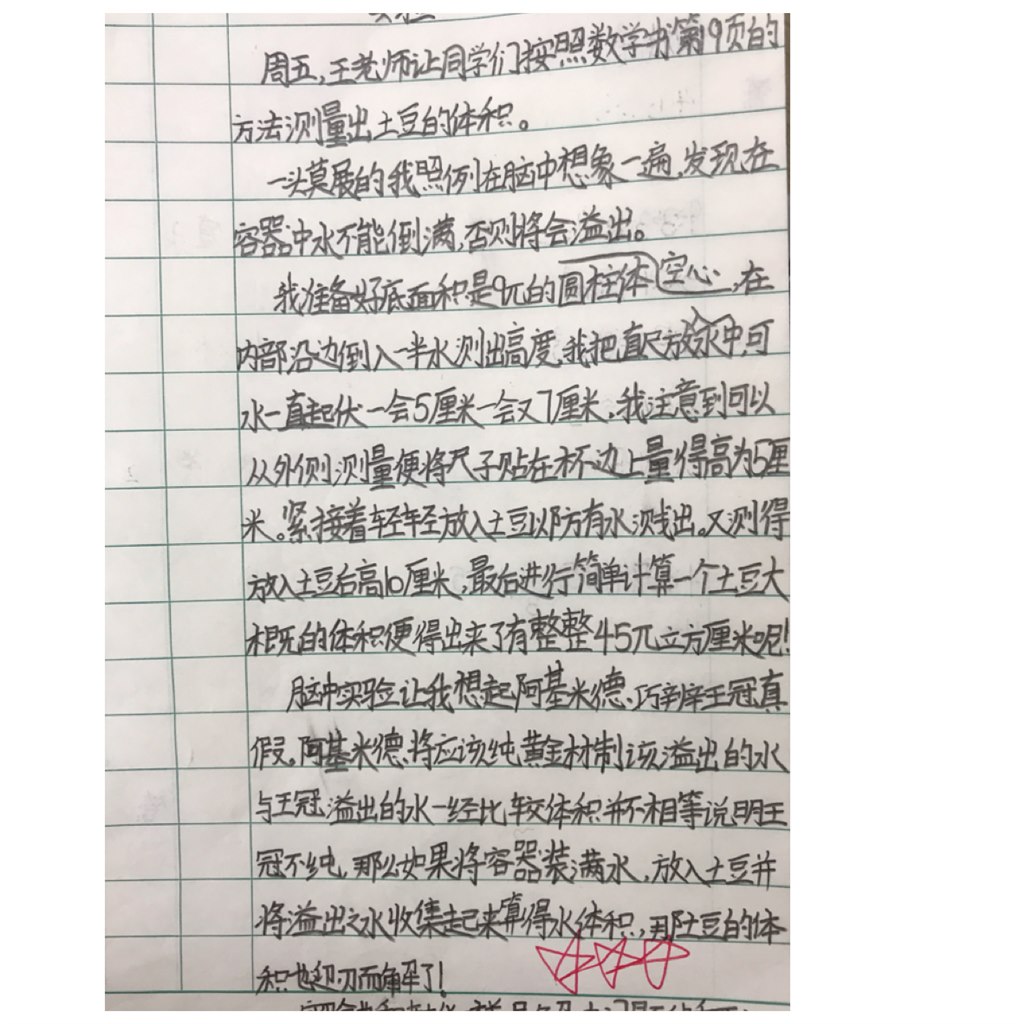 实验
周五,王老师让同学们按照数学书第9页的
方法测量出土豆的体积。
一头莫展的我照例在脑中想象一遍,发现在
容器中水不能倒满,否则将会溢出。
我准备好底面积是9兀的圆柱体空心,在
内部沿边倒入一半水测出高度,我把直尺放水中,可
水一直起伏一会5厘米一会又7厘米,我注意到可以
从外侧测量便将尺子贴在杯边上量得高为5厘
米。紧接着轻轻放入土豆以防有水溅出。又测得
放入土豆后高10厘米,最后进行简单计算一个土豆大
概的体积便得出来了有整整45兀立方厘米呢!
脑中实验让我想起阿基米德巧辨王冠真
假。阿基米德将应该纯黄金材制该溢出的水
与王冠溢出的水一经比较体积并不相等说明王
冠不纯,那么如果将容器装满水,放入土豆并
将溢出之水收集起来算得水体积,那土豆的体
积也迎刃而解了!